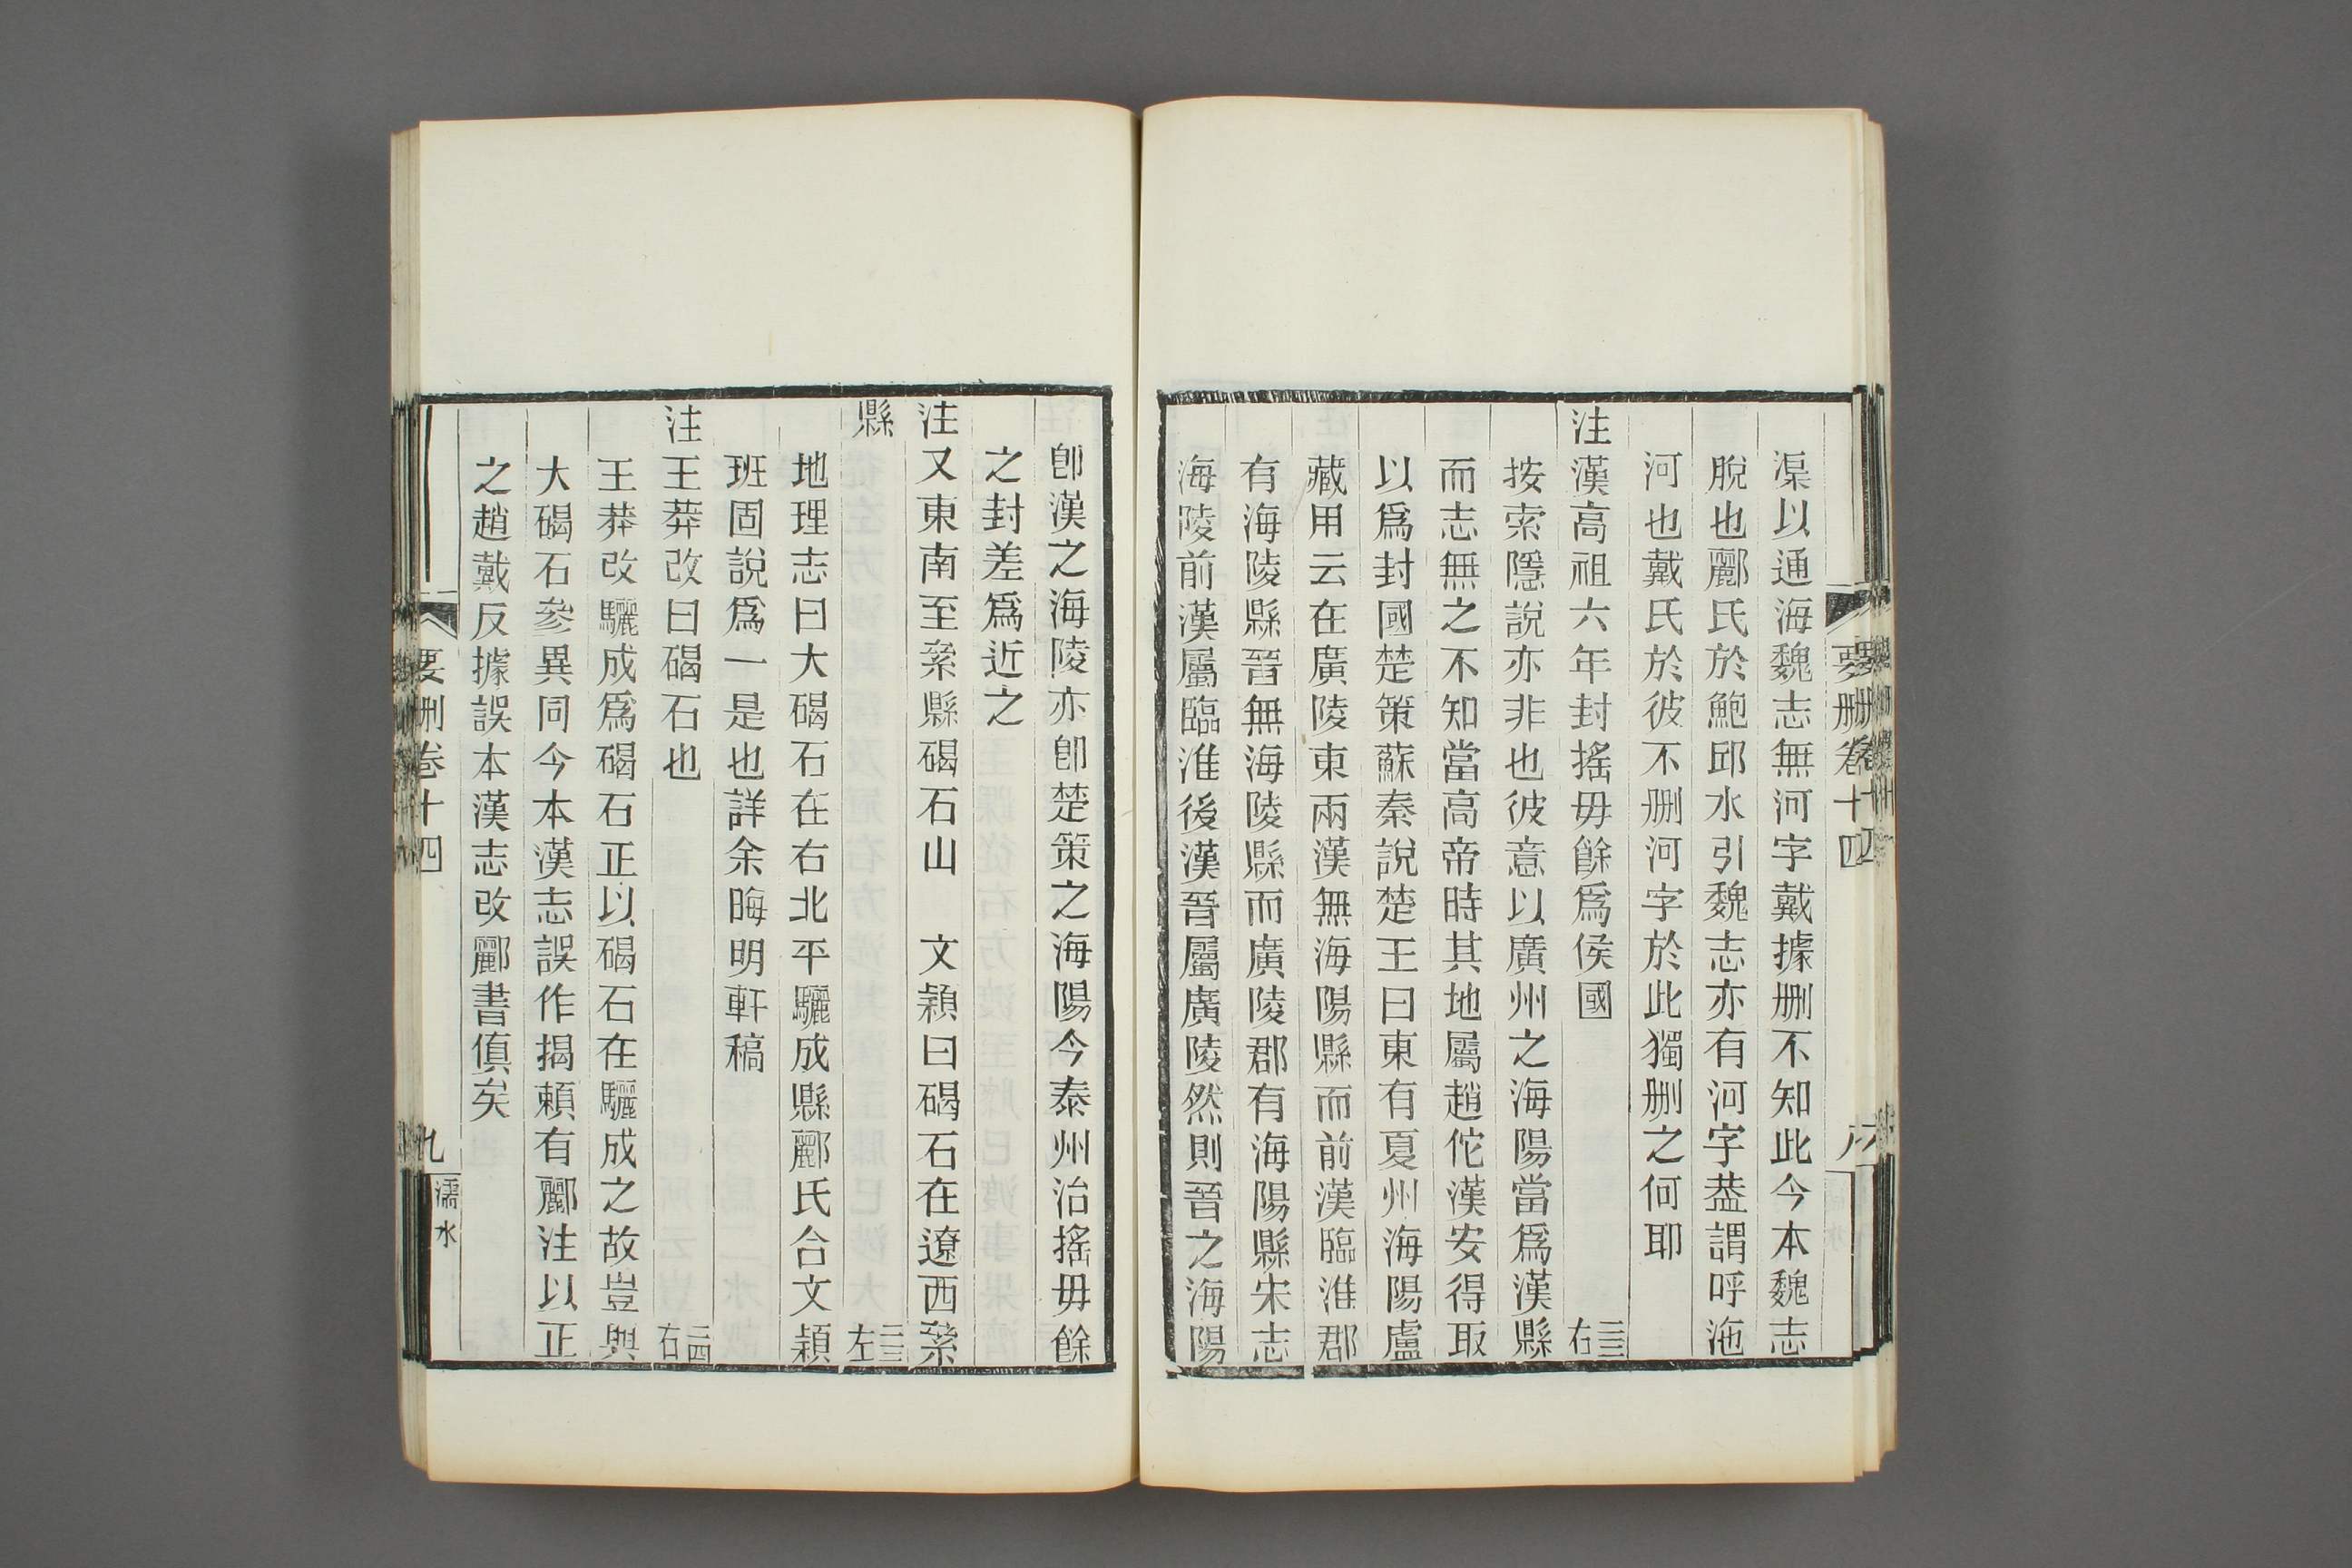 渠以通海魏志無河字戴據刪不知此今本魏志
脫也酈氏於鮑邱水引魏志亦有河字葢謂呼沲
河也戴氏於彼不刪河字於此獨刪之何耶
注漢高祖六年封搖毋餘爲侯國 二三右
按索隱說亦非也彼意以廣州之海陽當爲漢縣
而志無之不知當高帝時其地屬趙佗漢安得取
以爲封國楚策蘇秦說楚王曰東有夏州海陽盧
藏用云在廣陵東兩漢無海陽縣而前漢臨淮郡
有海陵縣晉無海陵縣而廣陵郡有海陽縣宋志
海陵前漢屬臨淮後漢晉屬廣陵然則晉之海陽
卽漢之海陵亦卽楚策之海陽今泰州治搖毋餘
之封差爲近之
注又東南至絫縣碣石山 文穎曰碣石在遼西絫
縣 二三左
地理志曰大碣石在右北平驪成縣酈氏合文穎
班固說爲一是也詳余晦明軒稿
注王莽改曰碣石也 二四右
王莽改驪成爲碣石正以碣石在驪成之故豈與
大碣石參異同今本漢志誤作揭賴有酈注以正
之趙戴反據誤本漢志改酈書傎矣
要刪卷十四
九
濡水
要刪卷十四